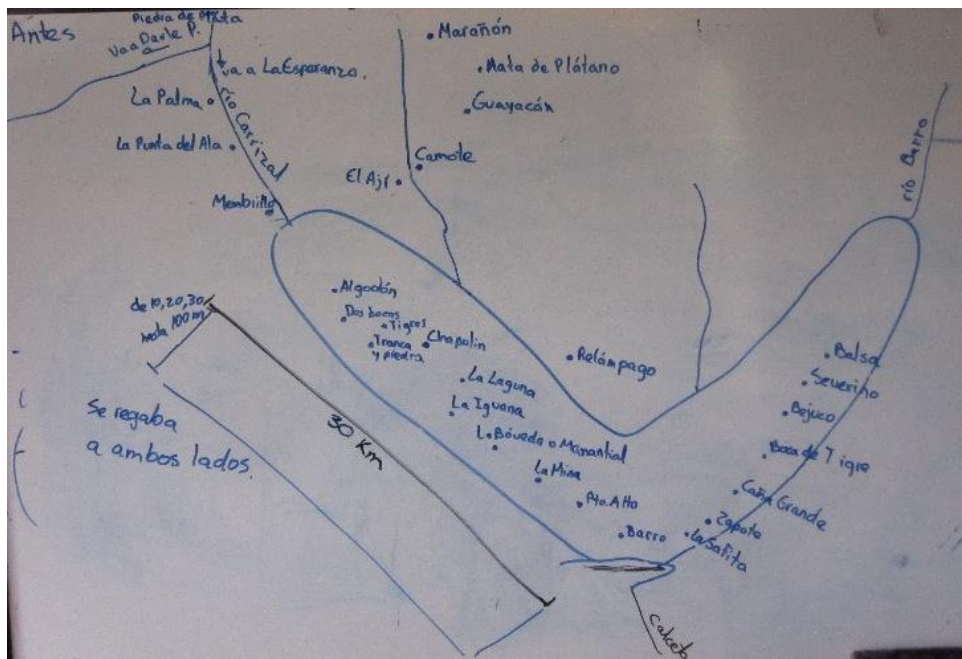 Antes
Piedra de Plata
Va a Darle P.
va a La Esperanza.
La Palma
río Carrizal
La Punta del Ala
Membrillo
Marañón
Mata de Plátano
Guayacán
Camote
El Ají
río Barro
Algodón
Dos bocas
Tigres
Tranca
y piedra
Chapulin
Relámpago
La Laguna
La Iguana
L. Bóveda o Manantial
La Mina
Pto. Alto
Barro
Balsa
Severino
Bejuco
Boca de Tigre
Caña Grande
Zapote
La Sarita
Calceta
de 10, 20, 30
hasta 100 m
30 Km
Se regaba
a ambos lados.